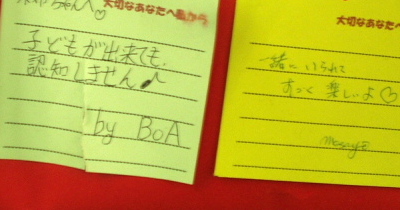 ちゃんへ♡
大切なあなたへ私から
子どもが出来ても、
認知しません♪
by BoA
大切なあなたへ
一緒にいられて
すごく楽しいよ♡